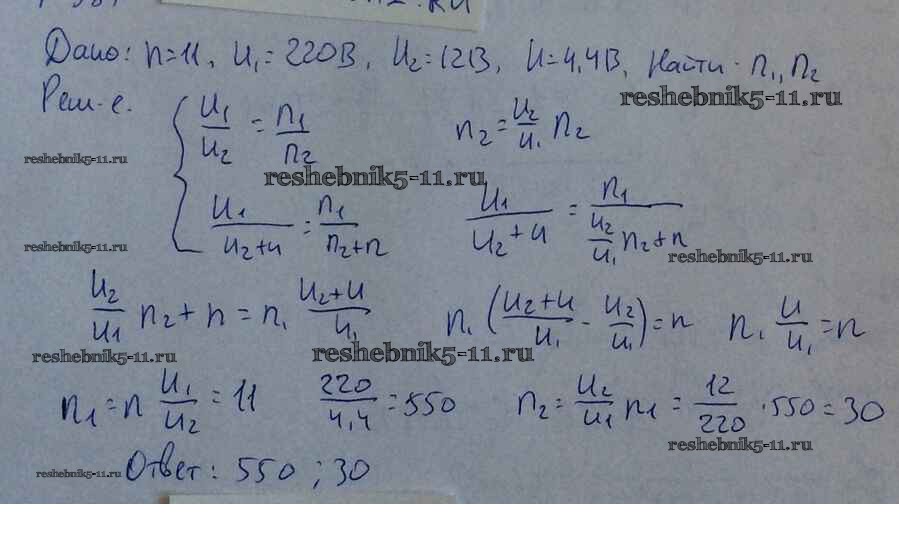 Дано: n=11, U₁=220В, U₂=12В, U=4,4В, Найти: n₁, n₂
reshebnik5-11.ru
Реш-е. { U₁/U₂ = n₁/n₂ n₂ = U₂/U₁ n₂
reshebnik5-11.ru
reshebnik5-11.ru
U₁/(U₂+U) = n₁/(n₂+n) U₁/(U₂+U) = n₁/(U₂/U₁ n₂+n)
reshebnik5-11.ru
reshebnik5-11.ru
U₂/U₁ n₂ + n = n₁ (U₂+U)/U₁ n₁ ((U₂+U)/U₁ - U₂/U₁) = n n₁ U/U₁ = n
reshebnik5-11.ru
reshebnik5-11.ru
n₁ = n U₁/U₂ = 11 220/4,4 = 550 n₂ = U₂/U₁ n₁ = 12/220 · 550 = 30
reshebnik5-11.ru
reshebnik5-11.ru
Ответ: 550 ; 30